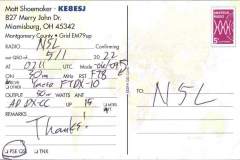 Matt Shoemaker - KE8ESJ
827 Merry John Dr.
Miamisburg, OH 45342
Montgomery County • Grid EM79vp
RADIO NSL Confirming
our QSO 5/1 2022
At 0211 UTC Mode
On 30m RST
Yaesu FTDX-10
Output 80 WATTS ANT
DX-CC UP 15
REMARKS
Thanks!
PSE QSL TNX
NSL
5